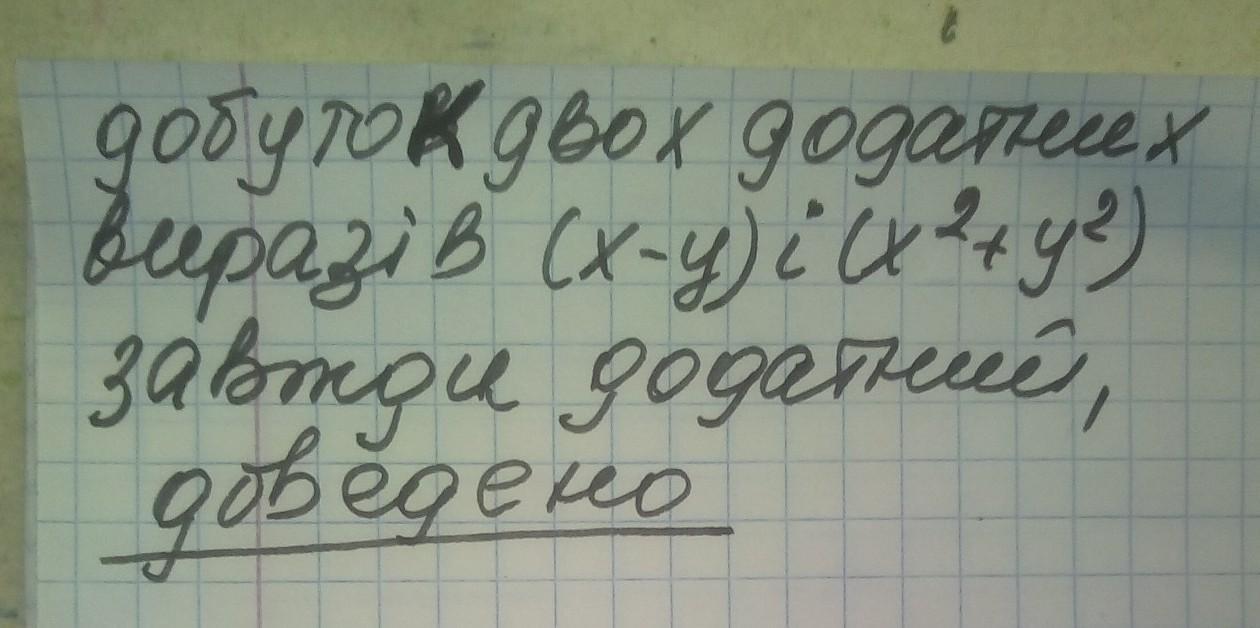 добуток двох додатних
виразів (x-y) і (x²+y²)
завжди додатний,
доведено